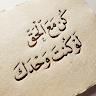 كُنْ مَعَ الْحَقِّ
لَوْ كُنْتَ وَحْدَكَ